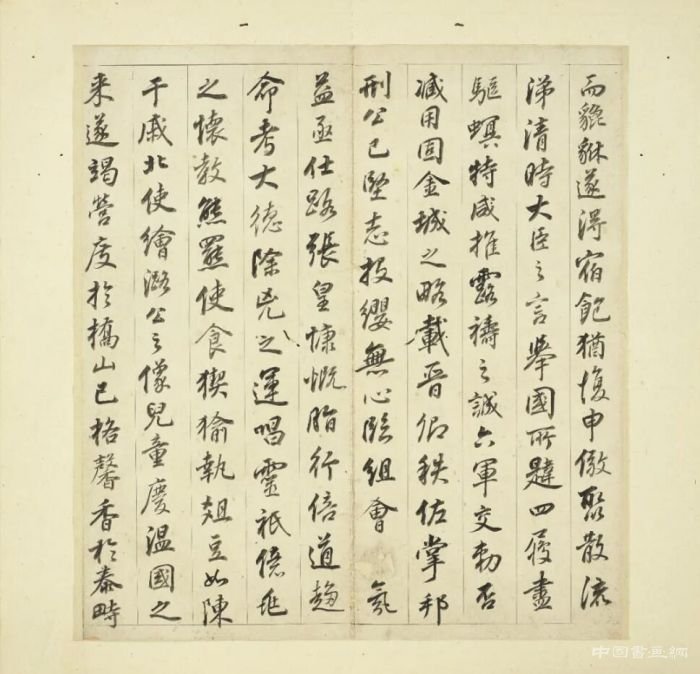 而貔貅遂得宿飽猶復申儆聚散流
涕清時大臣之言舉國所韙四履盡
驅螟特感推露禱之誠六軍交勅否
臧用固金城之略載晉卿秩佐掌邦
刑公已堅志投纓無心組會氣
益亟仕路張皇慷慨脂行倍道趨
命考大德除兇之運唱靈祇億
之懷教熊羆使食猰㺄執俎豆如陳
干戚北使繪潞公之像兒童慶溫國之
来遂竭營度於橋山已格馨香於泰畤
中国書画網